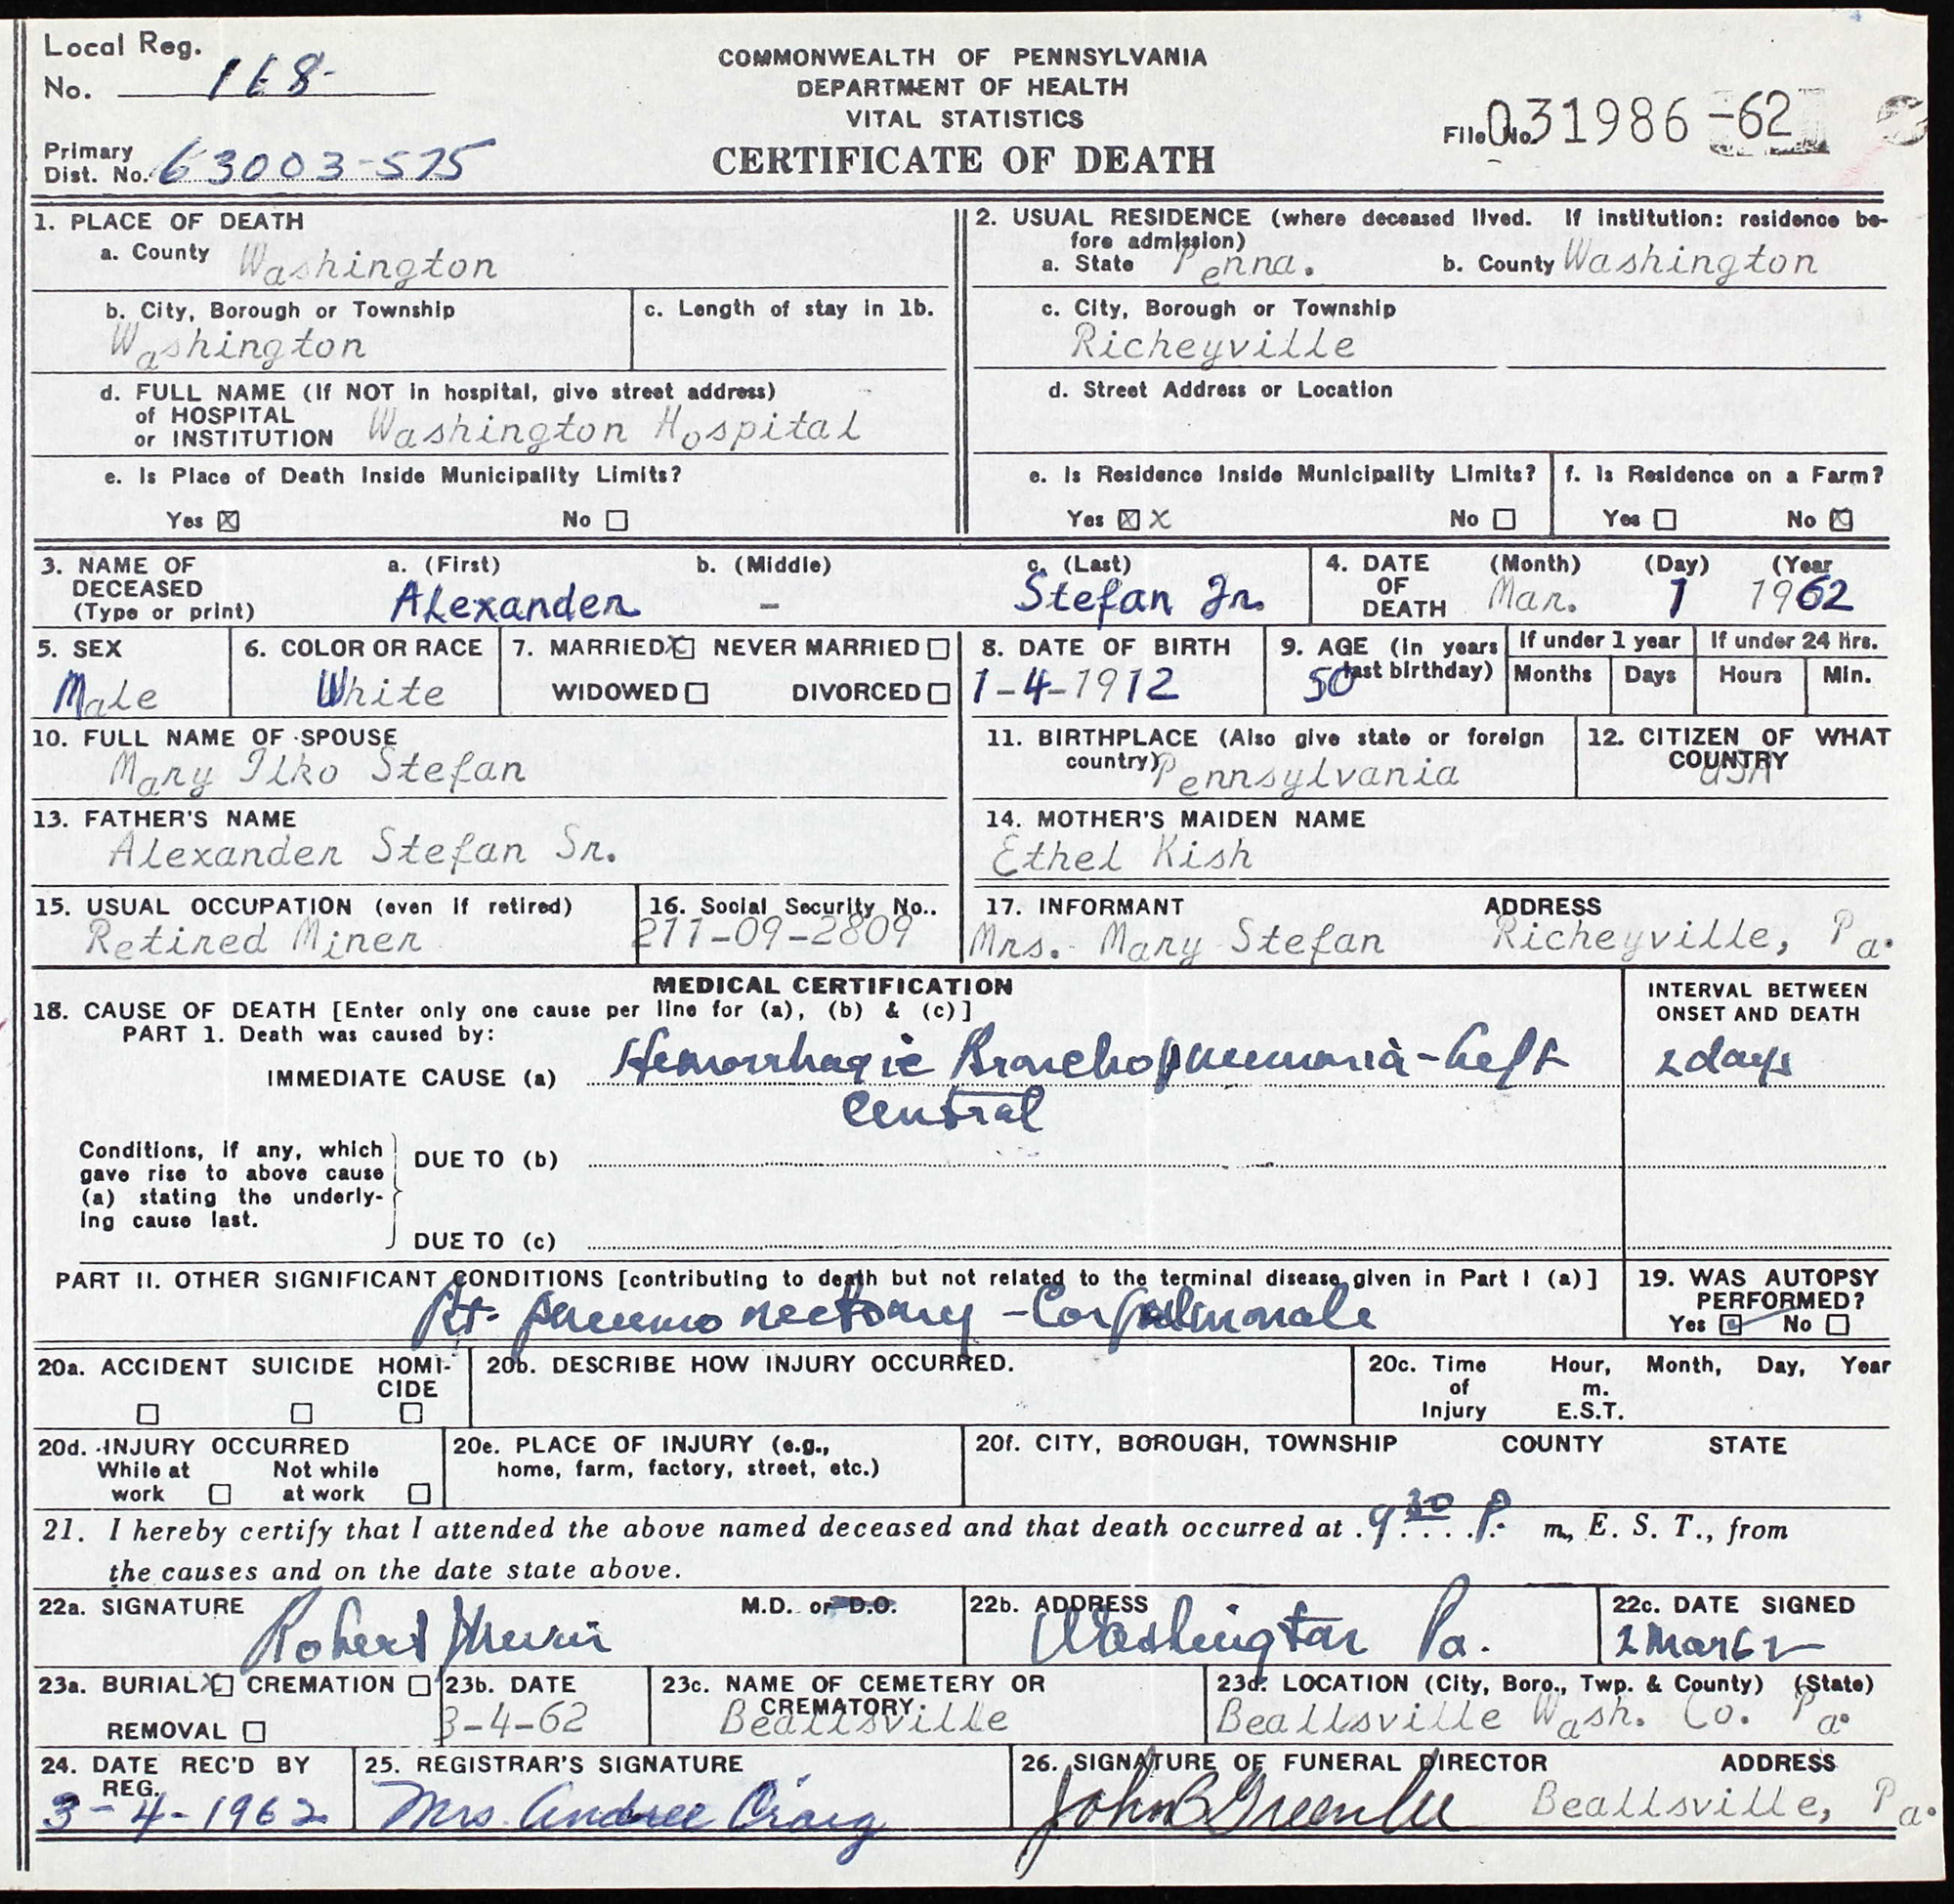 Local Reg.
No. 168-
COMMONWEALTH OF PENNSYLVANIA
DEPARTMENT OF HEALTH
VITAL STATISTICS
CERTIFICATE OF DEATH
File No. 031986-62
Primary
Dist. No. 63003-575
1. PLACE OF DEATH
a. County Washington
b. City, Borough or Township
Washington
c. Length of stay in 1b.
d. FULL NAME (If NOT in hospital, give street address)
of HOSPITAL
or INSTITUTION Washington Hospital
e. Is Place of Death Inside Municipality Limits?
Yes ☒ No ☐
2. USUAL RESIDENCE (where deceased lived. If institution: residence be-
fore admission)
a. State Penna. b. County Washington
c. City, Borough or Township
Richeyville
d. Street Address or Location
e. Is Residence Inside Municipality Limits?
Yes ☒ X No ☐
f. Is Residence on a Farm?
Yes ☐ No ☒
3. NAME OF DECEASED (Type or print)
a. (First) b. (Middle) c. (Last)
Alexander - Stefan Jr.
4. DATE OF DEATH (Month) (Day) (Year
Mar. 1 1962
5. SEX
Male
6. COLOR OR RACE
White
7. MARRIED ☒ NEVER MARRIED ☐
WIDOWED ☐ DIVORCED ☐
8. DATE OF BIRTH
1-4-1912
9. AGE (In years
last birthday)
50
If under 1 year
Months Days
If under 24 hrs.
Hours Min.
10. FULL NAME OF SPOUSE
Mary Ilko Stefan
11. BIRTHPLACE (Also give state or foreign
country) Pennsylvania
12. CITIZEN OF WHAT
COUNTRY
USA
13. FATHER'S NAME
Alexander Stefan Sr.
14. MOTHER'S MAIDEN NAME
Ethel Kish
15. USUAL OCCUPATION (even if retired)
Retired Miner
16. Social Security No..
211-09-2809
17. INFORMANT ADDRESS
Mrs. Mary Stefan Richeyville, Pa.
MEDICAL CERTIFICATION
18. CAUSE OF DEATH [Enter only one cause per line for (a), (b) & (c)]
PART 1. Death was caused by:
INTERVAL BETWEEN
ONSET AND DEATH
IMMEDIATE CAUSE (a) Hemorrhagic Bronchopneumonia-Left 2 days
Central
Conditions, if any, which
gave rise to above cause
(a) stating the underly-
ing cause last.
DUE TO (b)
DUE TO (c)
PART II. OTHER SIGNIFICANT CONDITIONS [contributing to death but not related to the terminal disease given in Part I (a)]
Rt. pneumonectomy - Cor pulmonale
19. WAS AUTOPSY
PERFORMED?
Yes ☑ No ☐
20a. ACCIDENT SUICIDE HOMI-
CIDE
☐ ☐ ☐
20b. DESCRIBE HOW INJURY OCCURRED.
20c. Time Hour, Month, Day, Year
of m.
Injury E.S.T.
20d. INJURY OCCURRED
While at Not while
work ☐ at work ☐
20e. PLACE OF INJURY (e.g.,
home, farm, factory, street, etc.)
20f. CITY, BOROUGH, TOWNSHIP COUNTY STATE
21. I hereby certify that I attended the above named deceased and that death occurred at 9 30 P. m., E. S. T., from
the causes and on the date state above.
22a. SIGNATURE M.D. or D.O.
Robert
22b. ADDRESS
Washington Pa.
22c. DATE SIGNED
2 Mar 62
23a. BURIAL ☒ CREMATION ☐
REMOVAL ☐
23b. DATE
3-4-62
23c. NAME OF CEMETERY OR
CREMATORY
Beallsville
23d. LOCATION (City, Boro., Twp. & County) (State)
Beallsville Wash. Co. Pa.
24. DATE REC'D BY
REG.
3-4-1962
25. REGISTRAR'S SIGNATURE
Mrs. Andree Craig
26. SIGNATURE OF FUNERAL DIRECTOR ADDRESS
John B Greenlee Beallsville, Pa.